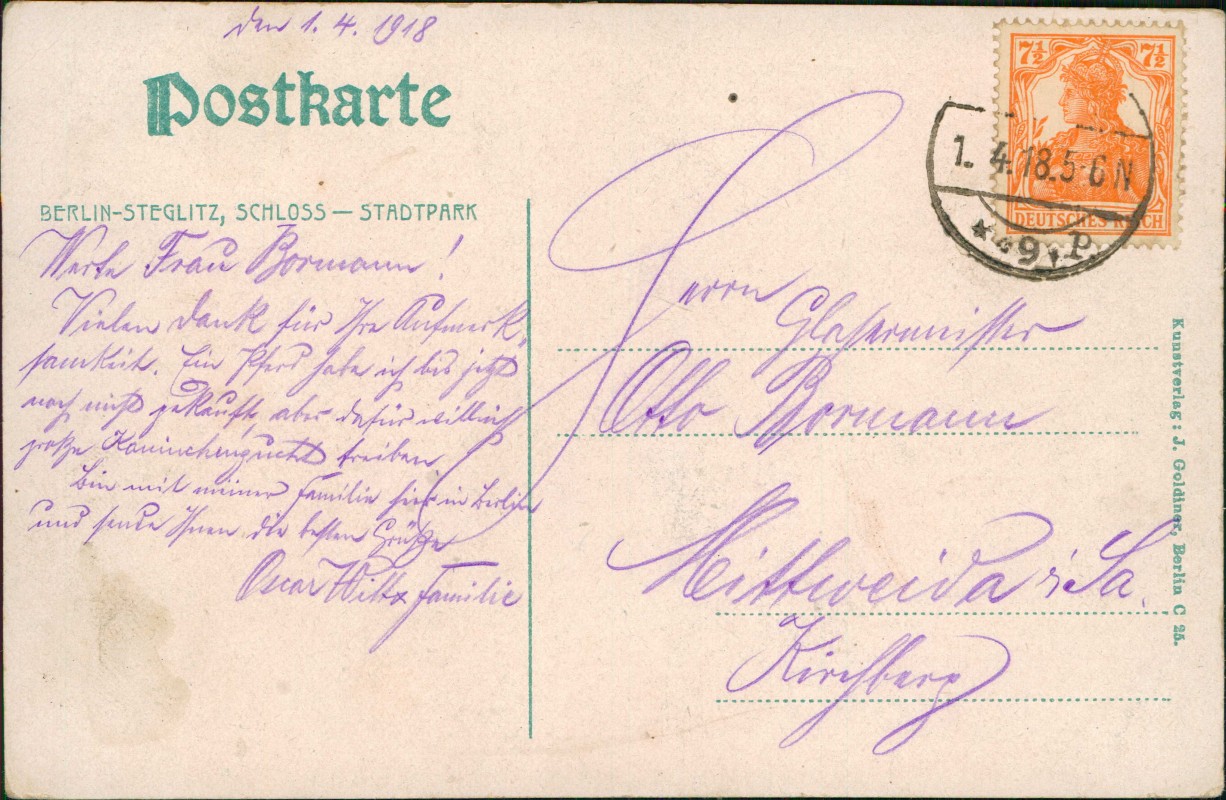 den 1. 4. 1918
Postkarte
BERLIN-STEGLITZ, SCHLOSS — STADTPARK
Werte Frau Bormann!
Vielen Dank für Ihre Aufmerk-
samkeit. Ein Pferd habe ich bis jetzt
noch nicht gekauft, aber dafür will ich
große Kaninchenzucht treiben.
Bin mit meiner Familie hier in Berlin
und sende Ihnen die besten Grüße
Oscar Witt & Familie
7½ 7½
DEUTSCHES REICH
1. 4. 18. 5-6 N
* 9 P.
Herrn
Glasermeister
Otto Bormann
Mittweida i/Sa.
Kirchberg
Kunstverlag: J. Goldiner, Berlin C 25.